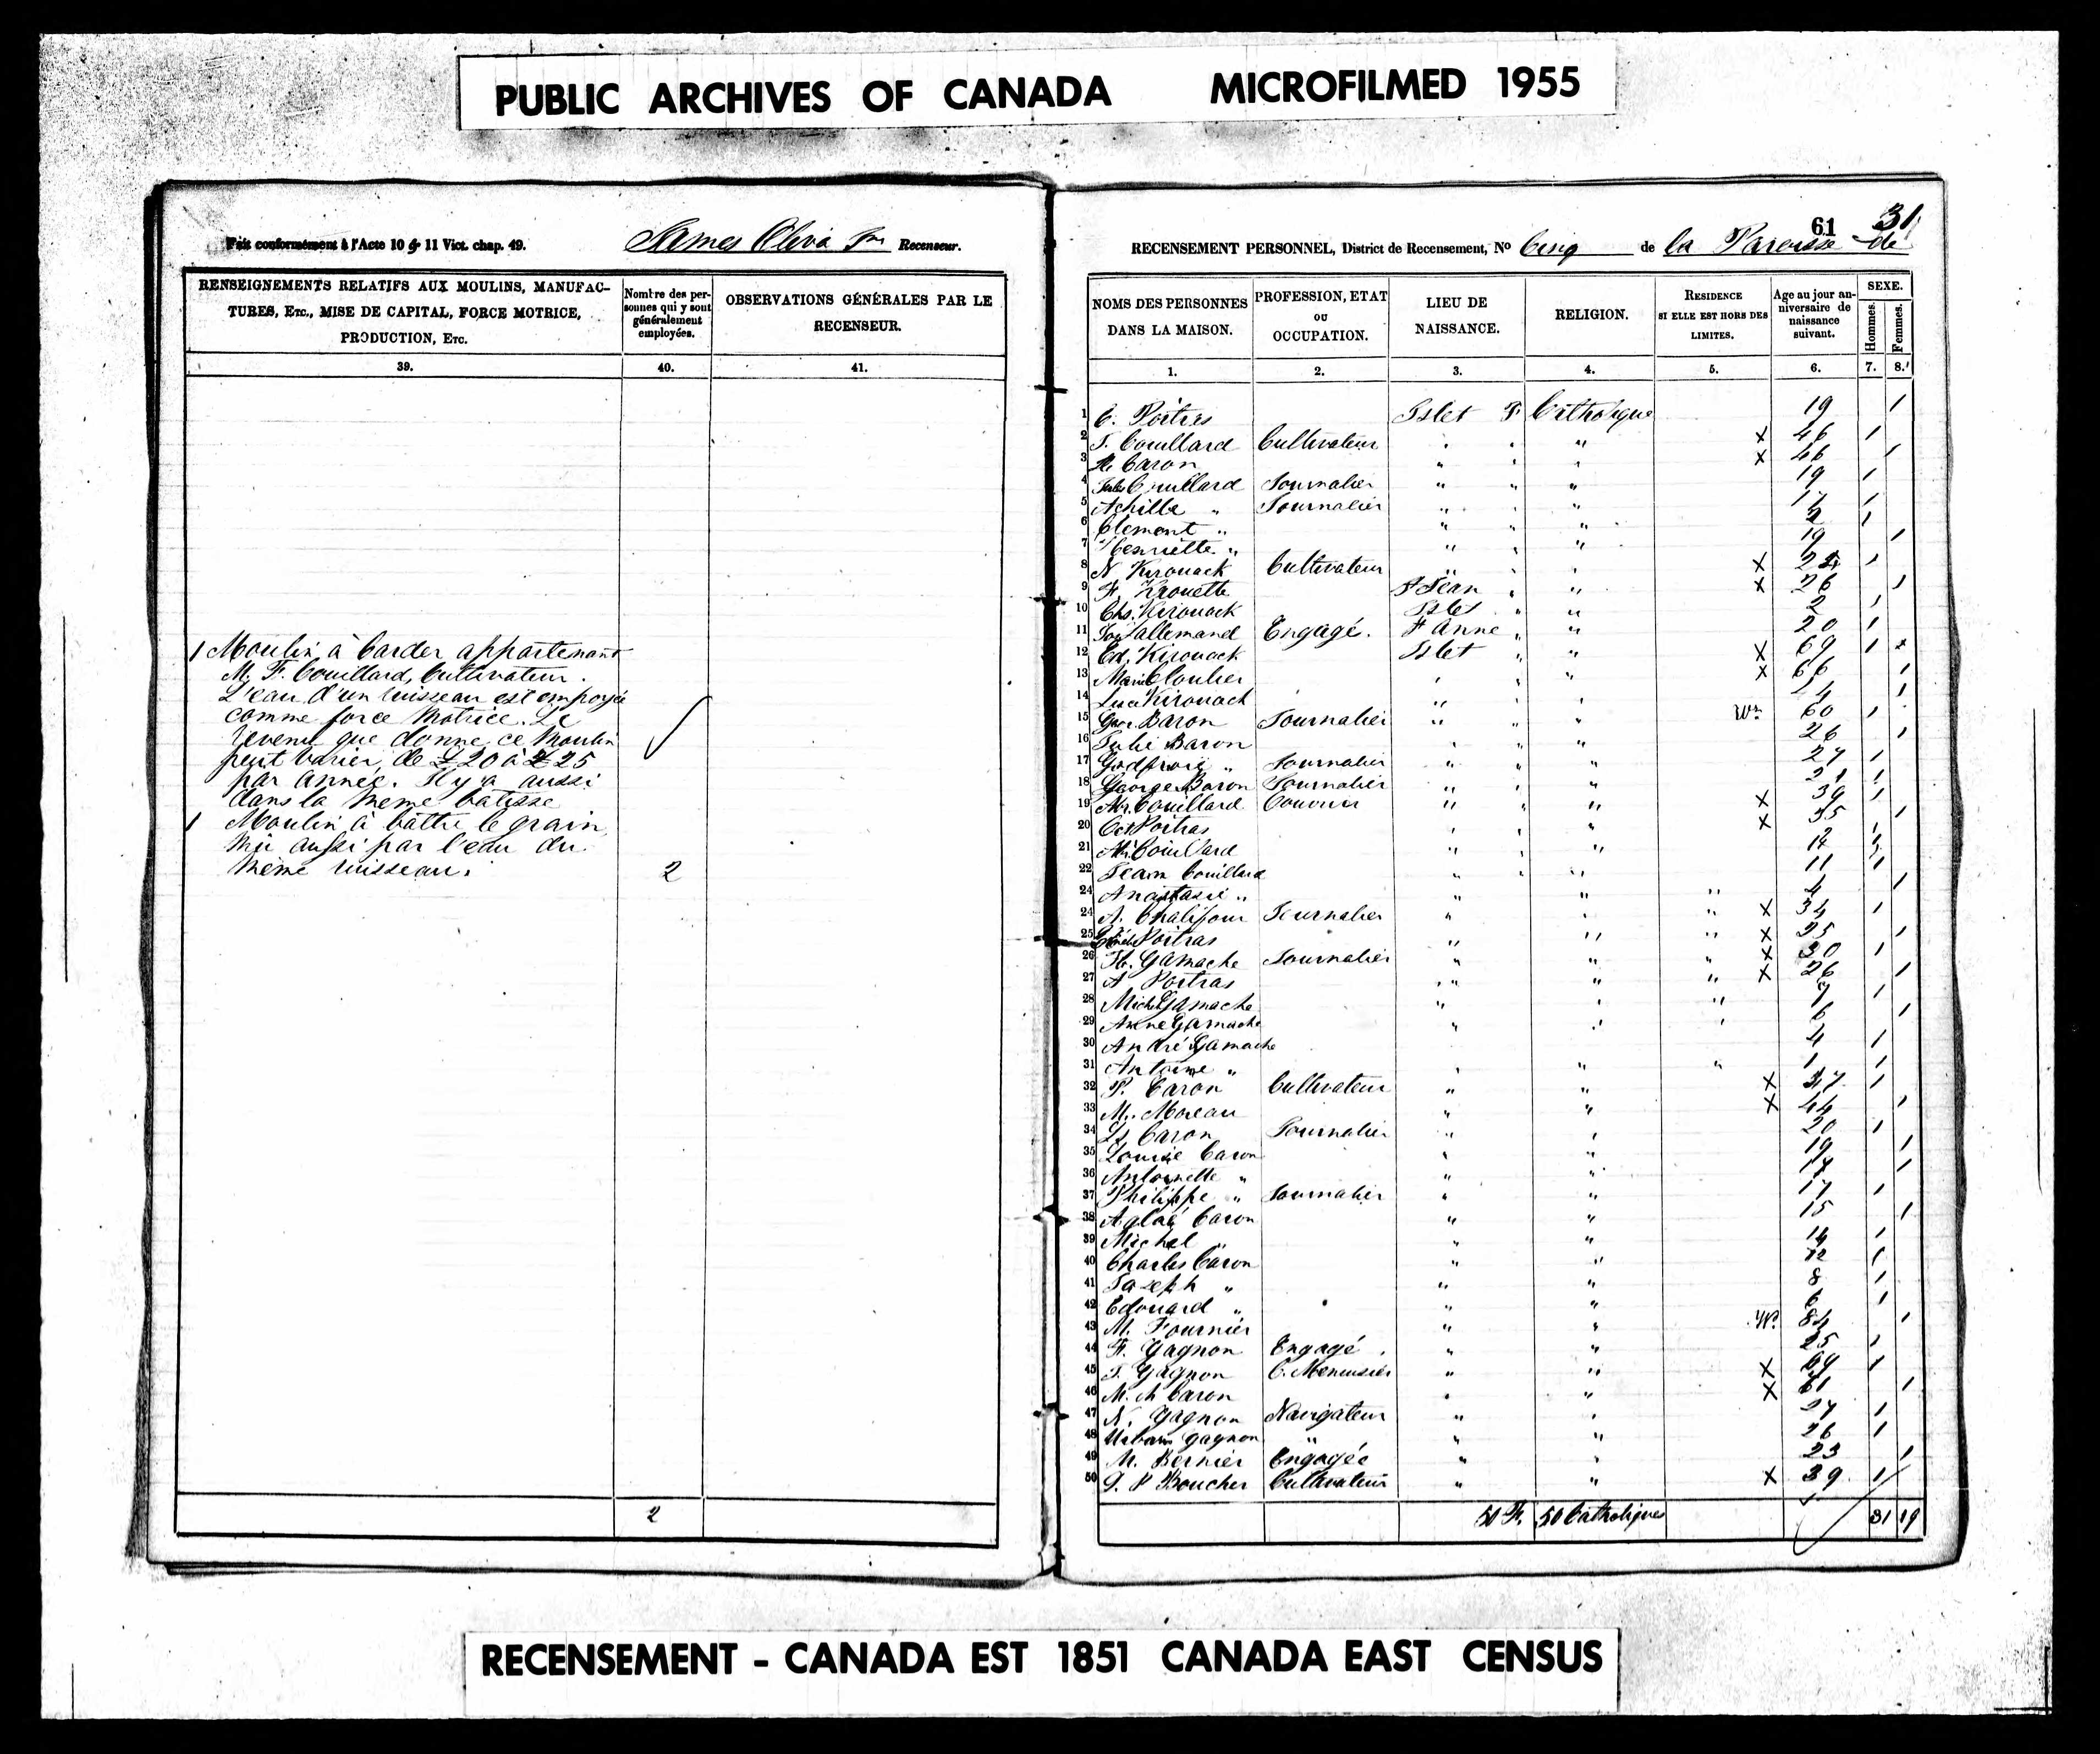 PUBLIC ARCHIVES OF CANADA MICROFILMED 1955
Fait conformément à l'Acte 10 & 11 Vict. chap. 49. James Oliva Recenseur.
RENSEIGNEMENTS RELATIFS AUX MOULINS, MANUFAC-
TURES, Etc., MISE DE CAPITAL, FORCE MOTRICE,
PRODUCTION, Etc.
Nombre des per-
sonnes qui y sont
généralement
employées.
OBSERVATIONS GÉNÉRALES PAR LE
RECENSEUR.
39. 40. 41.
1 Moulin à Carder appartenant
M. F. Couillard, Cultivateur.
L'eau d'un ruisseau est employée
comme force Motrice. Le
revenu que donne ce Moulin
peut varier de £20 à £25
par année. Il y a aussi
dans la meme batisse
1 Moulin à battre le grain
Mû aussi par l'eau du
Même ruisseau. 2
2
61 31
RECENSEMENT PERSONNEL, District de Recensement, No Cinq de la Paroisse de
NOMS DES PERSONNES
DANS LA MAISON.
PROFESSION, ETAT
OU
OCCUPATION.
LIEU DE
NAISSANCE.
RELIGION.
RESIDENCE
SI ELLE EST HORS DES
LIMITES.
Age au jour an-
niversaire de
naissance
suivant.
SEXE.
Hommes.
Femmes.
1. 2. 3. 4. 5. 6. 7. 8.
1 C. Poitras Islet F Catholique 19 1
2 F. Couillard Cultivateur " " " x 46 1
3 Caron " " " x 46 1
4 Couillard Journalier " " " 19 1
5 Achille " Journalier " " " 17 1
6 Clement " " " " 1
7 Henriette " " " " 19 1
8 N Kirouack Cultivateur " " " x 1
9 Krouette St Jean " " x 26 1
10 Chs. Kirouack Islet " " 2 1
11 Lallemand Engagé. St Anne " " 20 1
12 Ed. Kirouack Islet " " x 69 1
13 Marie Cloutier " " " x 66 1
14 Kirouack " " " 1
15 Baron Journalier " " " 60 1
16 Julie Baron " " " 26 1
17 Godfroie " Journalier " " " 27 1
18 George Baron Journalier " " " 1
19 Couillard " " " x 39 1
20 Poitras " " " x 35 1
21 Couillard " " " 12 1
22 Jean Couillard " " " 11 1
24 Anastasie " " " " 1
24 A. Chalifour Journalier " " " x 34 1
25 Poitras " " " x 35 1
26 H. Gamache Journalier " " " x 30 1
27 A Poitras " " " x 26 1
28 Michel Gamache " " " 7 1
29 Anne Gamache " " " 6 1
30 André Gamache 4 1
31 Antoine " " " " 1 1
32 P. Caron Cultivateur " " x 47 1
33 M. Moreau " " x 44 1
34 Ls Caron Journalier " " 20 1
35 Louise Caron " " 19 1
36 Antoinette " " " 1
37 Philippe " Journalier " " 17 1
38 Aglaé Caron " " 15 1
39 Michel " " " 14 1
40 Charles Caron " " 12 1
41 Joseph " " " 8 1
42 Edouard " " " 6 1
43 M. Fournier " " 84 1
44 F. Gagnon Engagé " " 25 1
45 F. Gagnon C. Menuisier " " x 69 1
46 M. M Caron " " x 61 1
47 N. Gagnon Navigateur " " 27 1
48 Urbain Gagnon " " " 26 1
49 M. Bernier Engagée " " 23 1
50 Boucher Cultivateur " " x 39 1
50 F. 50 Catholiques 31 19
RECENSEMENT - CANADA EST 1851 CANADA EAST CENSUS